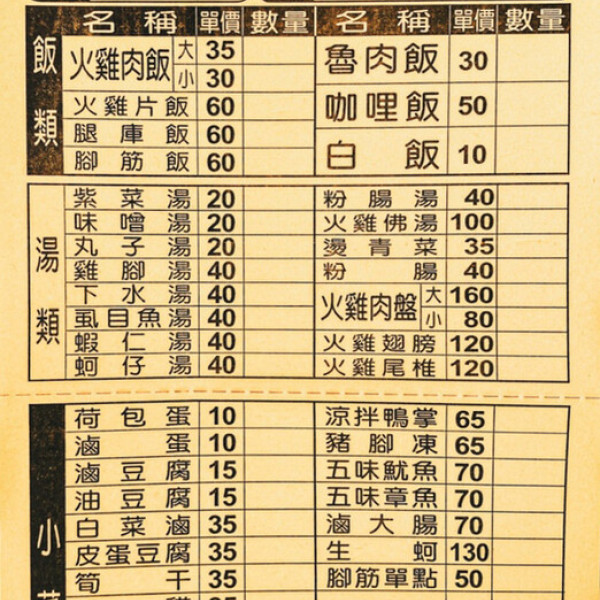 名稱 單價 數量 名稱 單價 數量
飯類
火雞肉飯 大 35
小 30
火雞片飯 60
腿庫飯 60
腳筋飯 60
魯肉飯 30
咖哩飯 50
白飯 10
湯類
紫菜湯 20
味噌湯 20
丸子湯 20
雞腳湯 40
下水湯 40
虱目魚湯 40
蝦仁湯 40
蚵仔湯 40
粉腸湯 40
火雞佛湯 100
燙青菜 35
粉腸 40
火雞肉盤 大 160
小 80
火雞翅膀 120
火雞尾椎 120
小
荷包蛋 10
滷蛋 10
滷豆腐 15
油豆腐 15
白菜滷 35
皮蛋豆腐 35
筍干 35
涼拌鴨掌 65
豬腳凍 65
五味魷魚 70
五味章魚 70
滷大腸 70
生蚵 130
腳筋單點 50